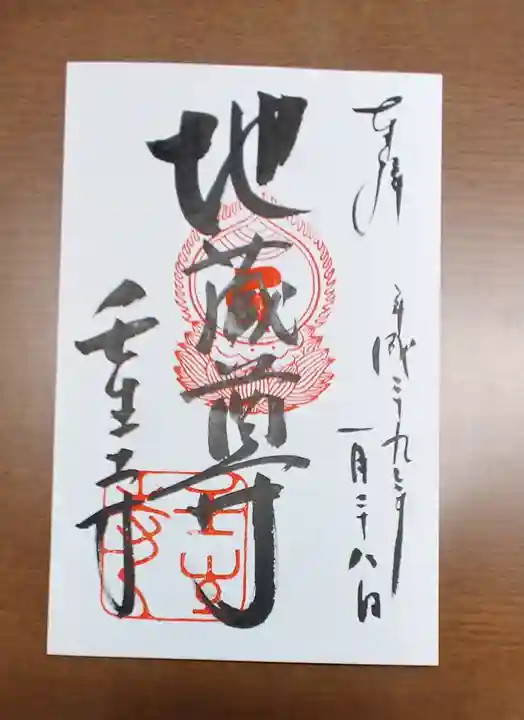 奉拝
平成二十九年
一月二十八日
地蔵尊
壬生寺